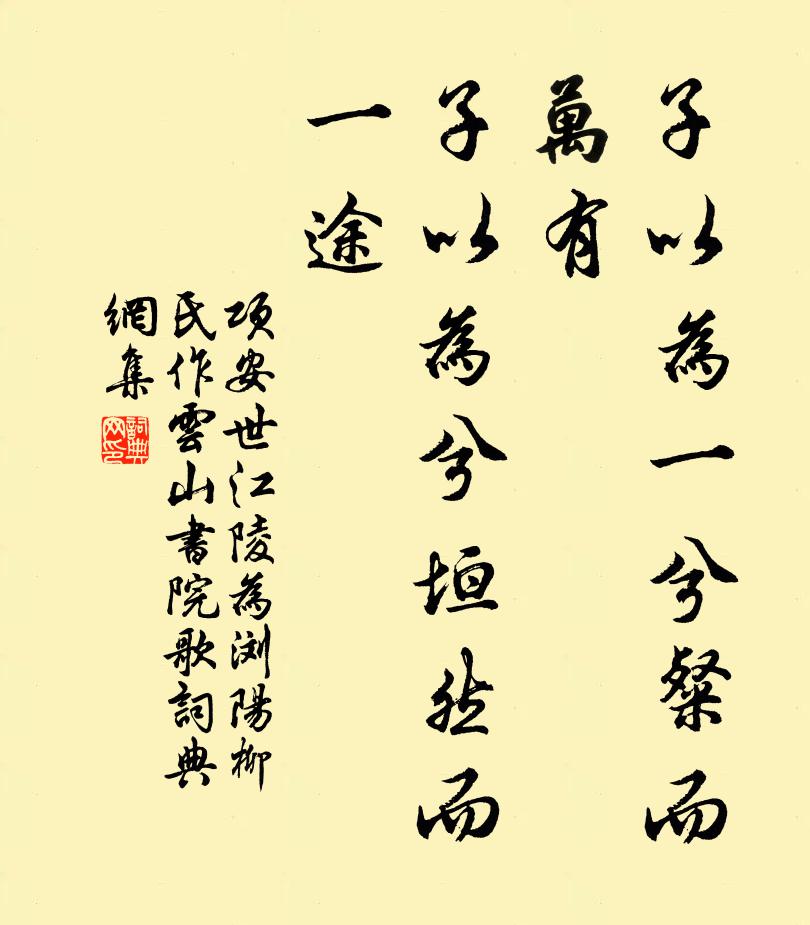 子以為一兮粲而
萬有
子以為兮垣然而
一途
項安世江陵為浏陽柳
民作雲山書院歌詞典
網集
詞典
网印